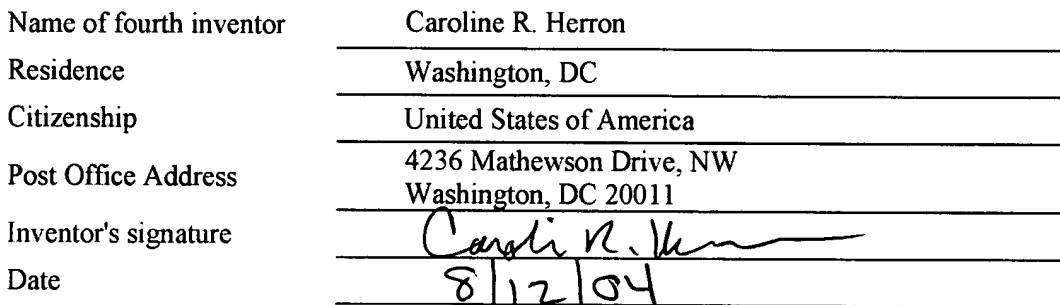 Name of fourth inventor Caroline R. Herron
Residence Washington, DC
Citizenship United States of America
Post Office Address 4236 Mathewson Drive, NW
Washington, DC 20011
Inventor's signature Caroli R. H
Date 8/12/04